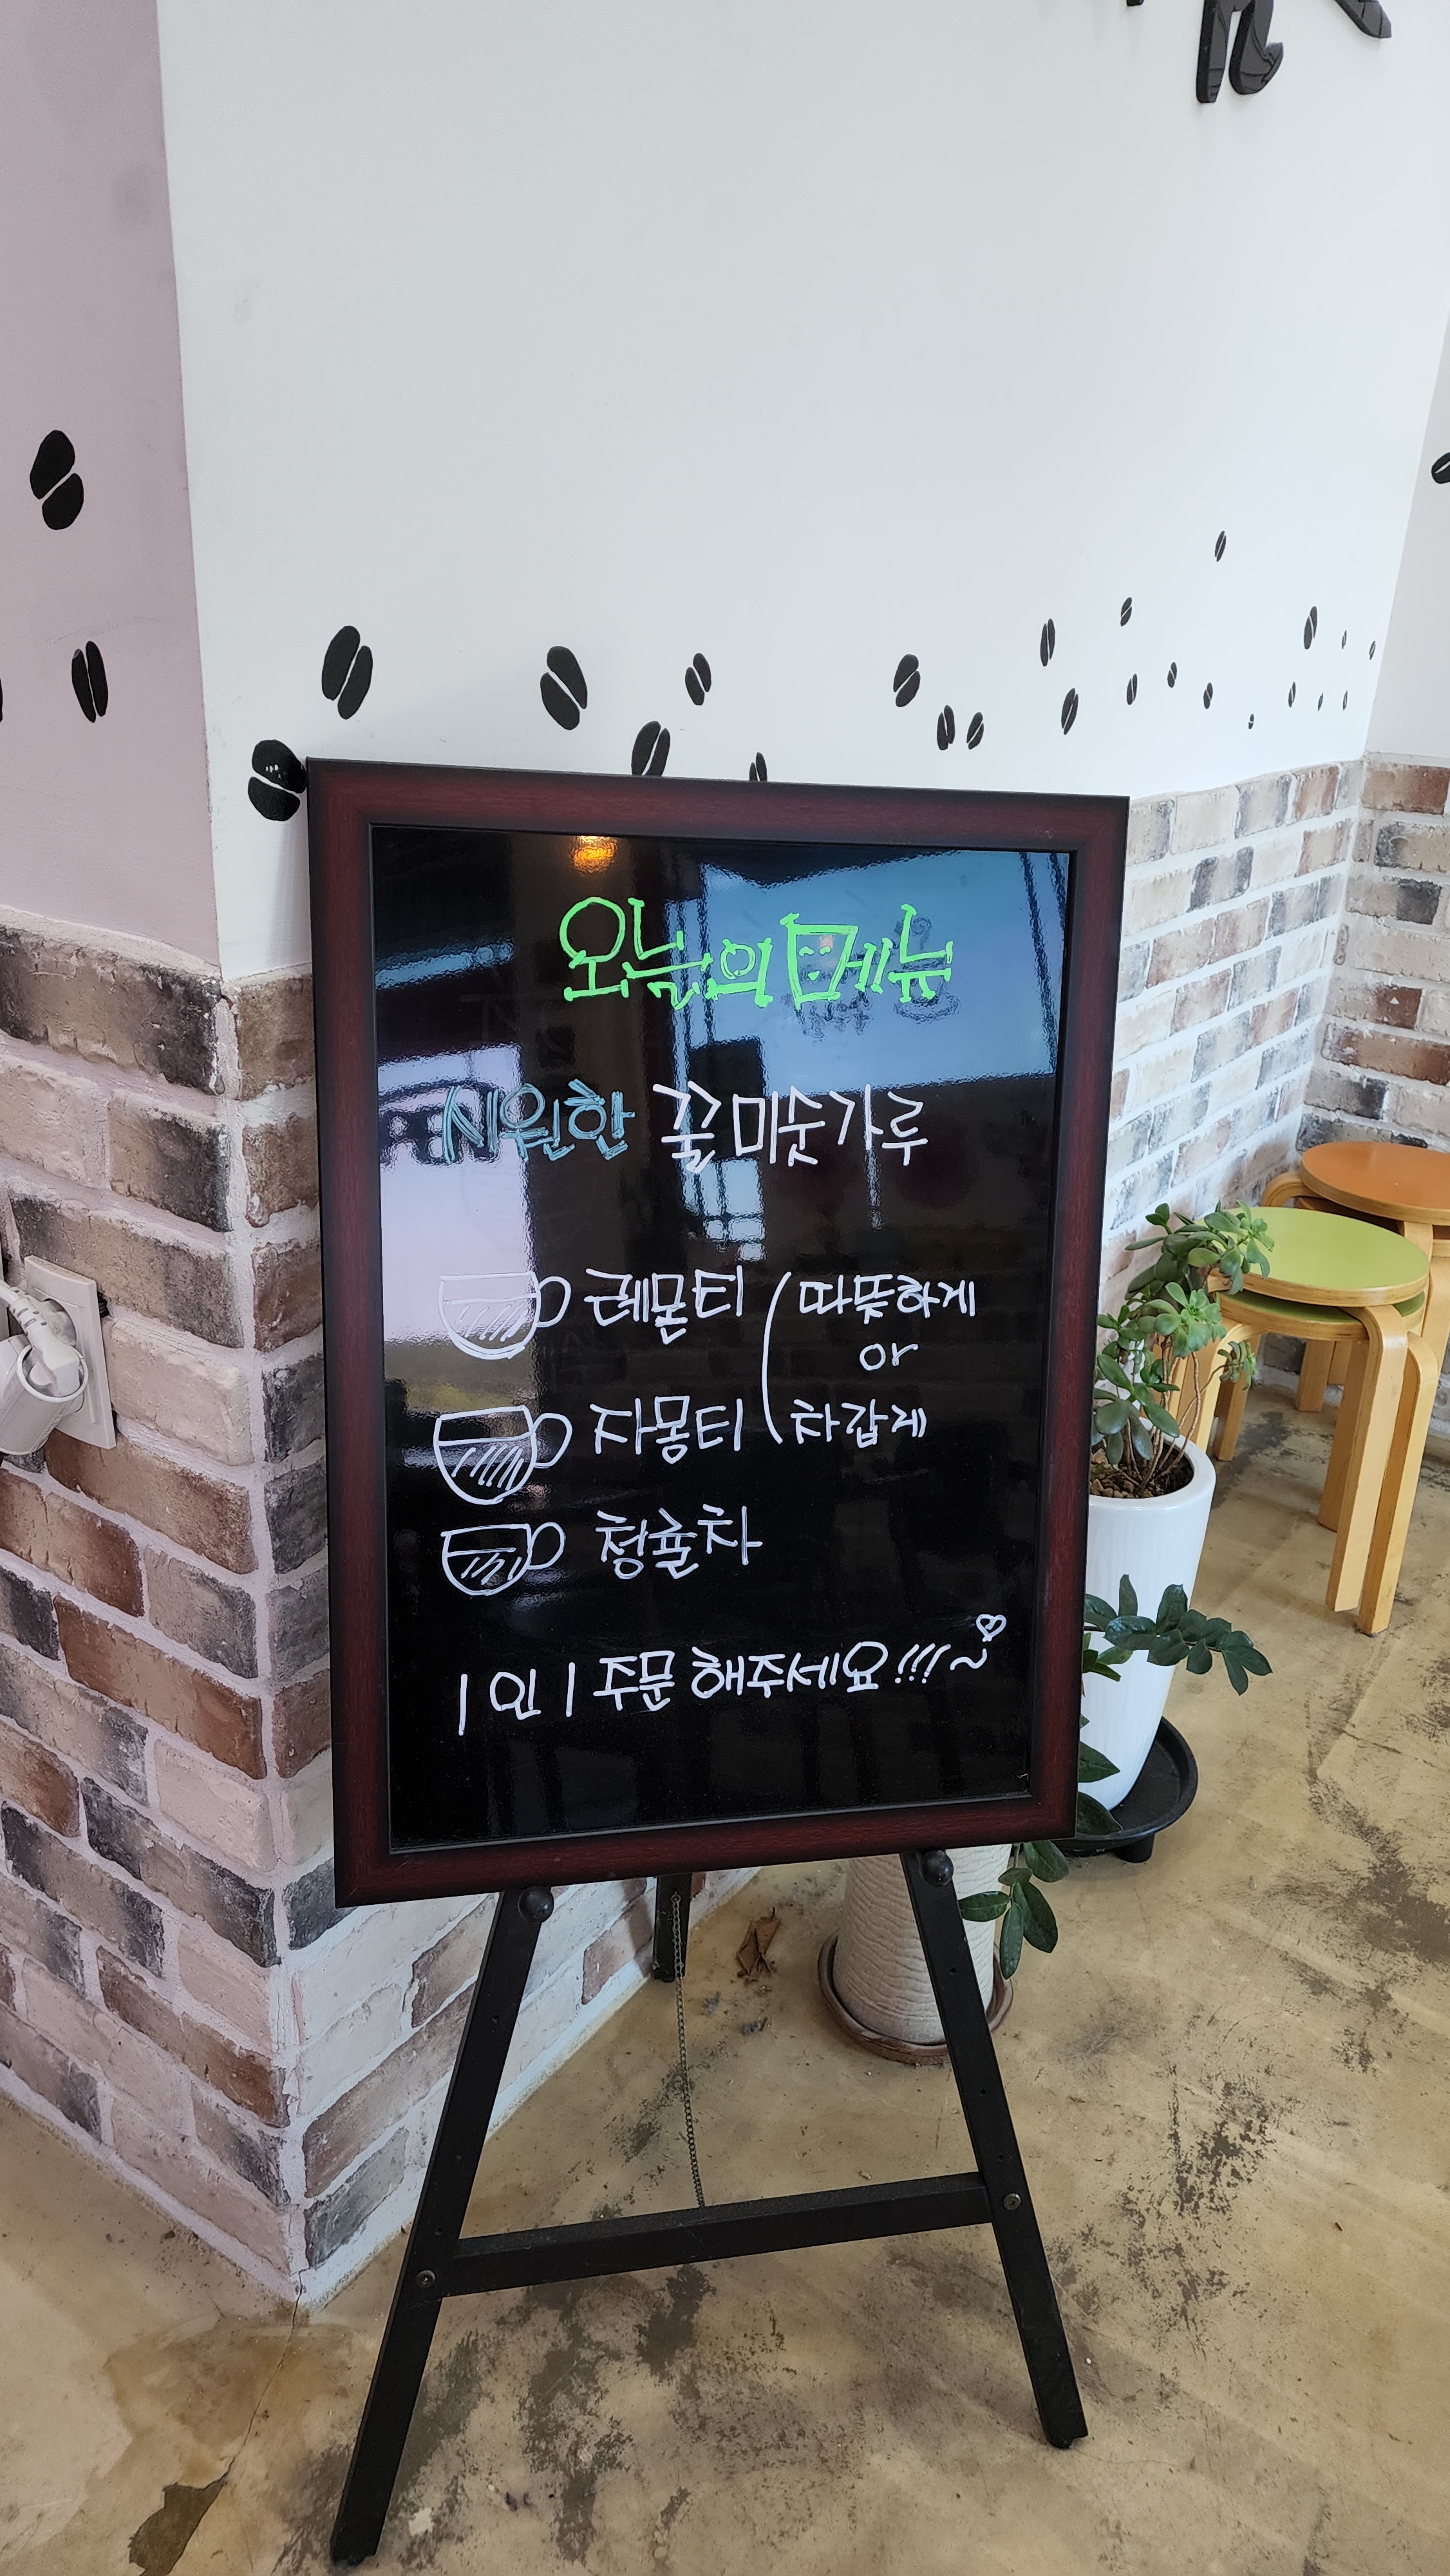 오늘의 메뉴
시원한 꿀미숫가루
레몬티 ( 따뜻하게
or
자몽티 차갑게
청귤차
1인 1 주문 해주세요!!!~♡